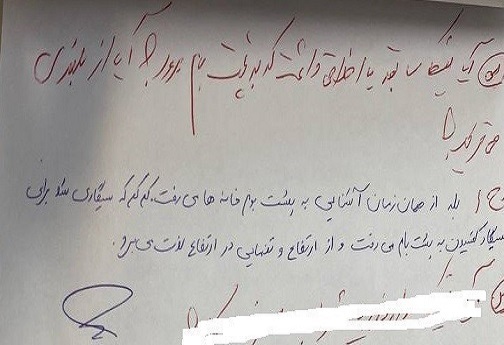 س) آیا نیکا سابقه یا اخلاقی داشت که به پشت بام برود؟ آیا از بلندی
می‌ترسید؟
ج) بله از همان زمان آشنایی به پشت بوم خانه های رفت. کم کم که سیگاری شد برای
سیگار کشیدن به پشت بام می رفت و از ارتفاع و تنهایی در ارتفاع لذت می برد.